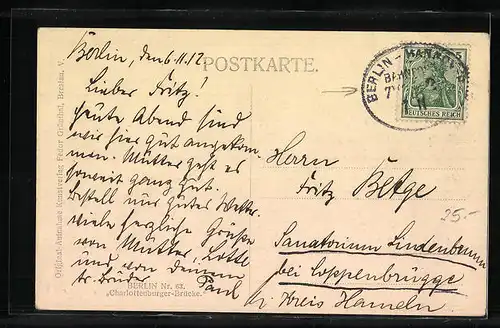 Berlin, den 6.11.12
POSTKARTE.
Lieber Fritz!
heute Abend sind
wir hier gut angekom-
men. Mutter geht es
soweit ganz gut.
Bestell uns gutes Wetter.
viele herzliche Grüsse
von Mutter, Lotte
und von deinem
tr. Bruder Paul
BERLIN Nr. 63.
„Charlottenburger-Brücke.
Original-Aufnahme Kunstverlag Fedor Breslau, V.
BERLIN - HANNOVER
BAHN
DEUTSCHES REICH
Herrn
Fritz Betge
Sanatorium Lindenbrunn
bei Coppenbrügge
Kreis Hameln.
25.-